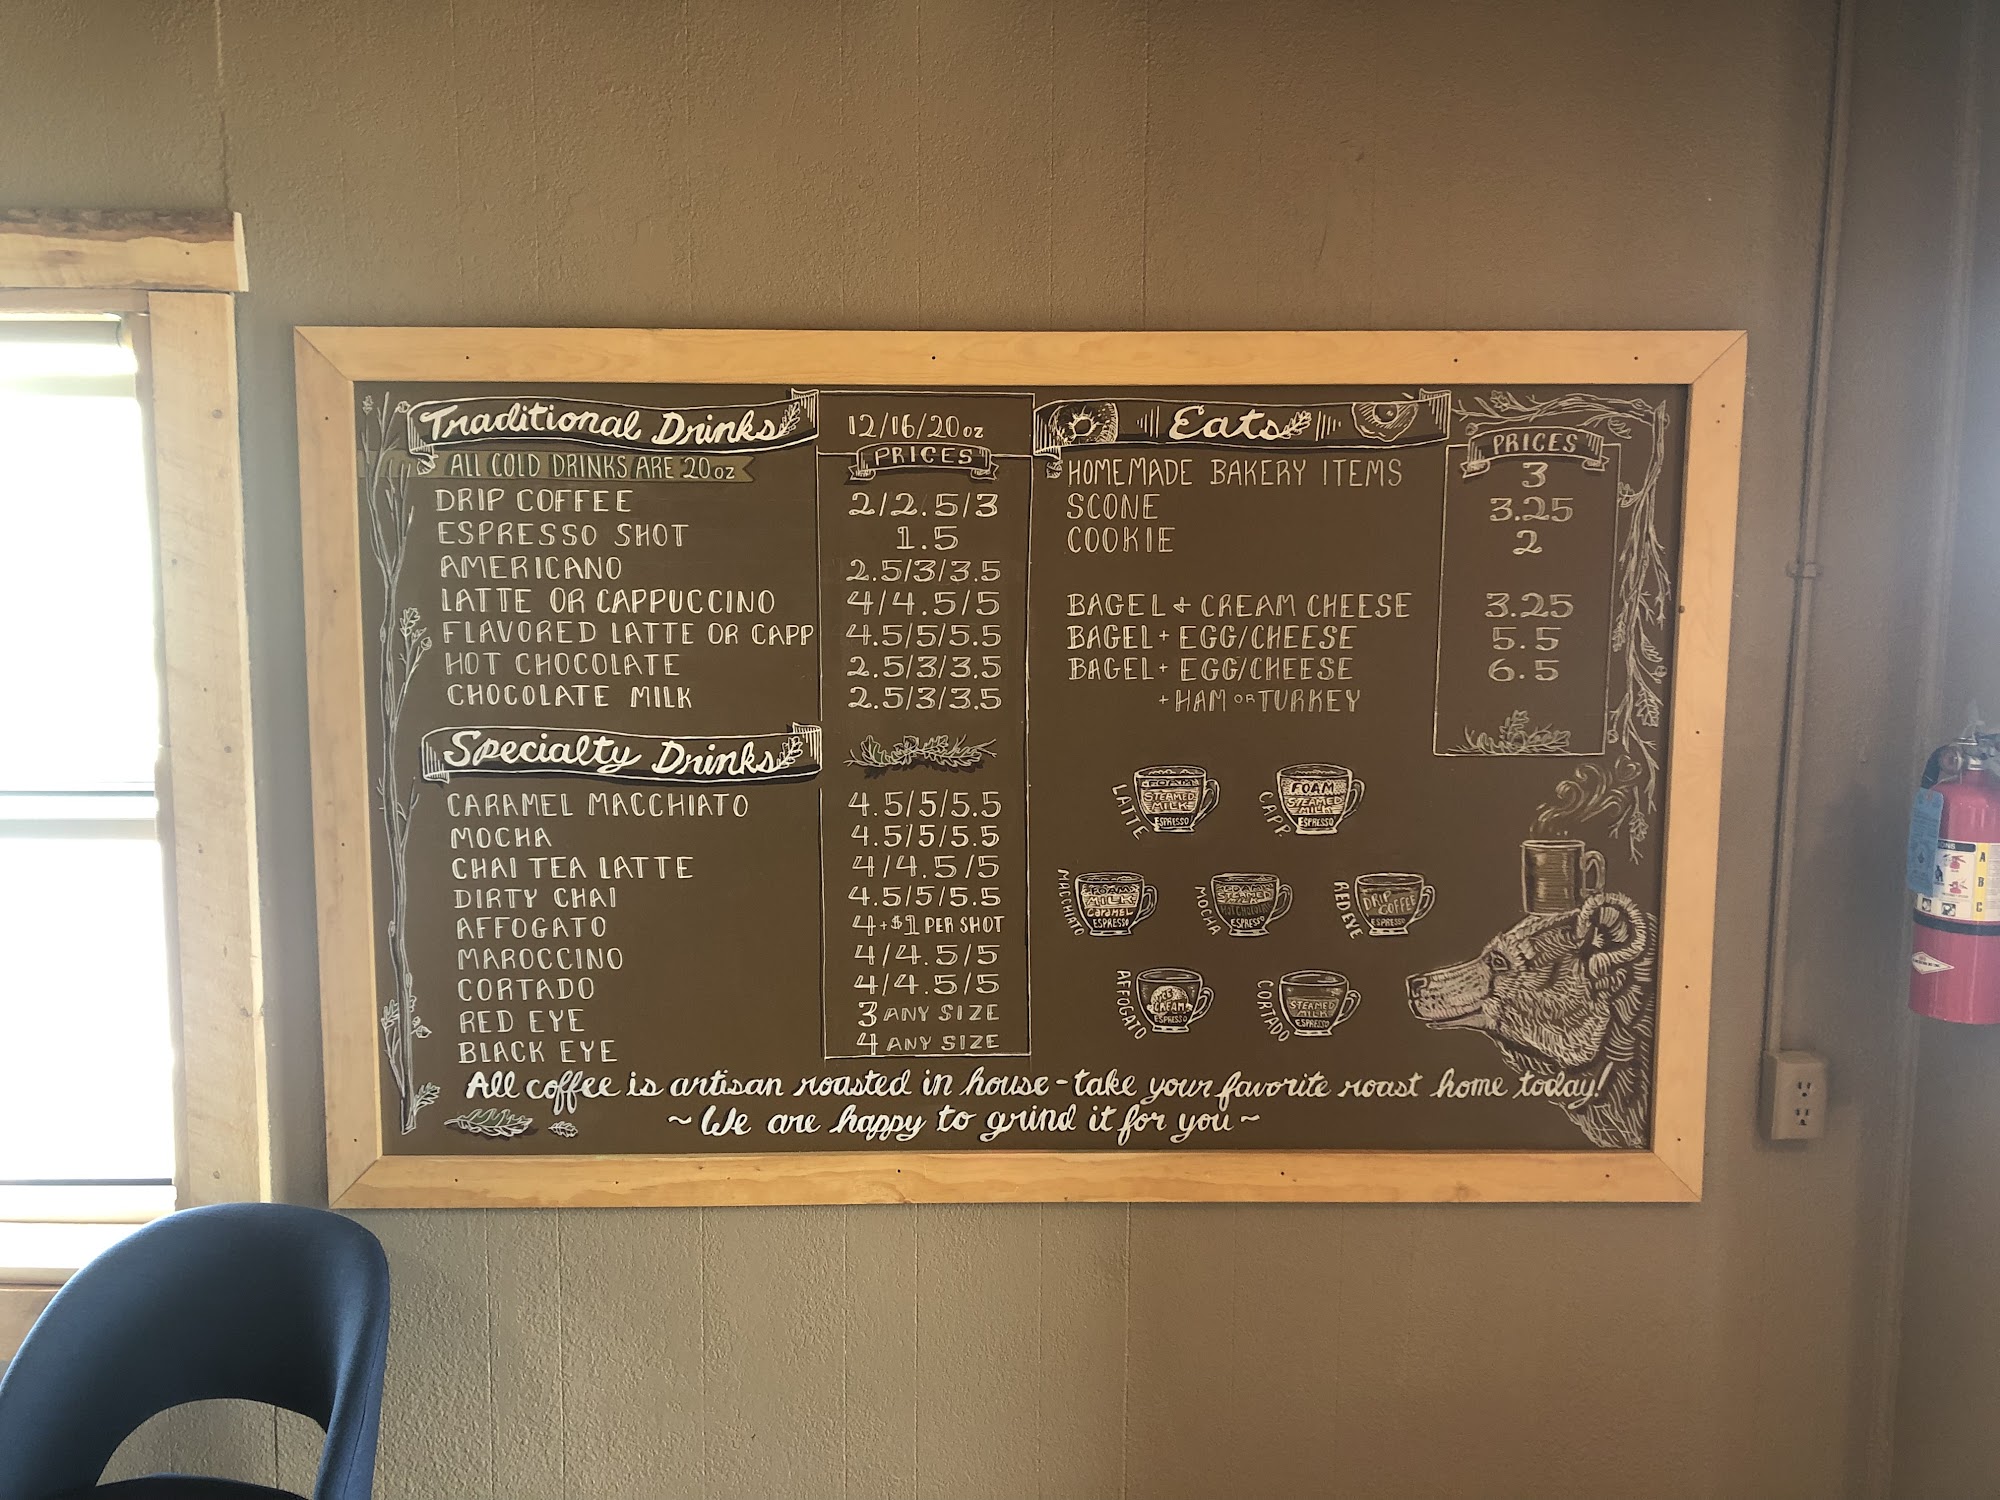 Traditional Drinks
12/16/20 oz
PRICES
ALL COLD DRINKS ARE 20 oz
DRIP COFFEE 2/2.5/3
ESPRESSO SHOT 1.5
AMERICANO 2.5/3/3.5
LATTE OR CAPPUCCINO 4/4.5/5
FLAVORED LATTE OR CAPP 4.5/5/5.5
HOT CHOCOLATE 2.5/3/3.5
CHOCOLATE MILK 2.5/3/3.5
Specialty Drinks
CARAMEL MACCHIATO 4.5/5/5.5
MOCHA 4.5/5/5.5
CHAI TEA LATTE 4/4.5/5
DIRTY CHAI 4.5/5/5.5
AFFOGATO 4+$1 PER SHOT
MAROCCINO 4/4.5/5
CORTADO 4/4.5/5
RED EYE 3 ANY SIZE
BLACK EYE 4 ANY SIZE
Eats
PRICES
HOMEMADE BAKERY ITEMS 3
SCONE 3.25
COOKIE 2
BAGEL + CREAM CHEESE 3.25
BAGEL + EGG/CHEESE 5.5
BAGEL + EGG/CHEESE 6.5
+ HAM OR TURKEY
LATTE
FOAM
STEAMED
MILK
ESPRESSO
CAPP
FOAM
STEAMED
MILK
ESPRESSO
MACCHIATO
FOAM
MILK
CARAMEL
ESPRESSO
MOCHA
STEAMED
HOT CHOCOLATE
ESPRESSO
RED EYE
DRIP
COFFEE
ESPRESSO
AFFOGATO
ICE
CREAM
ESPRESSO
CORTADO
STEAMED
MILK
ESPRESSO
All coffee is artisan roasted in house - take your favorite roast home today!
~ We are happy to grind it for you ~
A
B
C